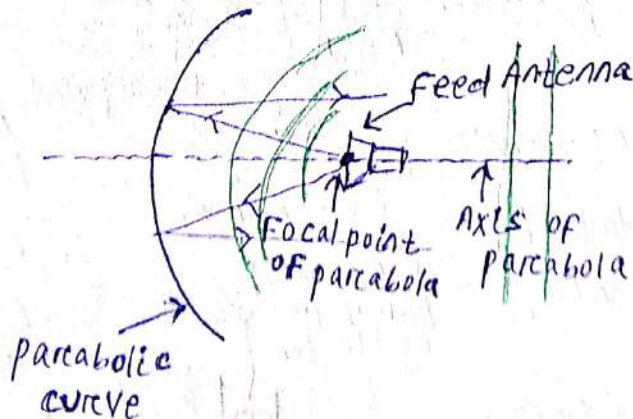 Feed Antenna
Focal point
of parcabola
Axis of
parcabola
parcabolic
curve